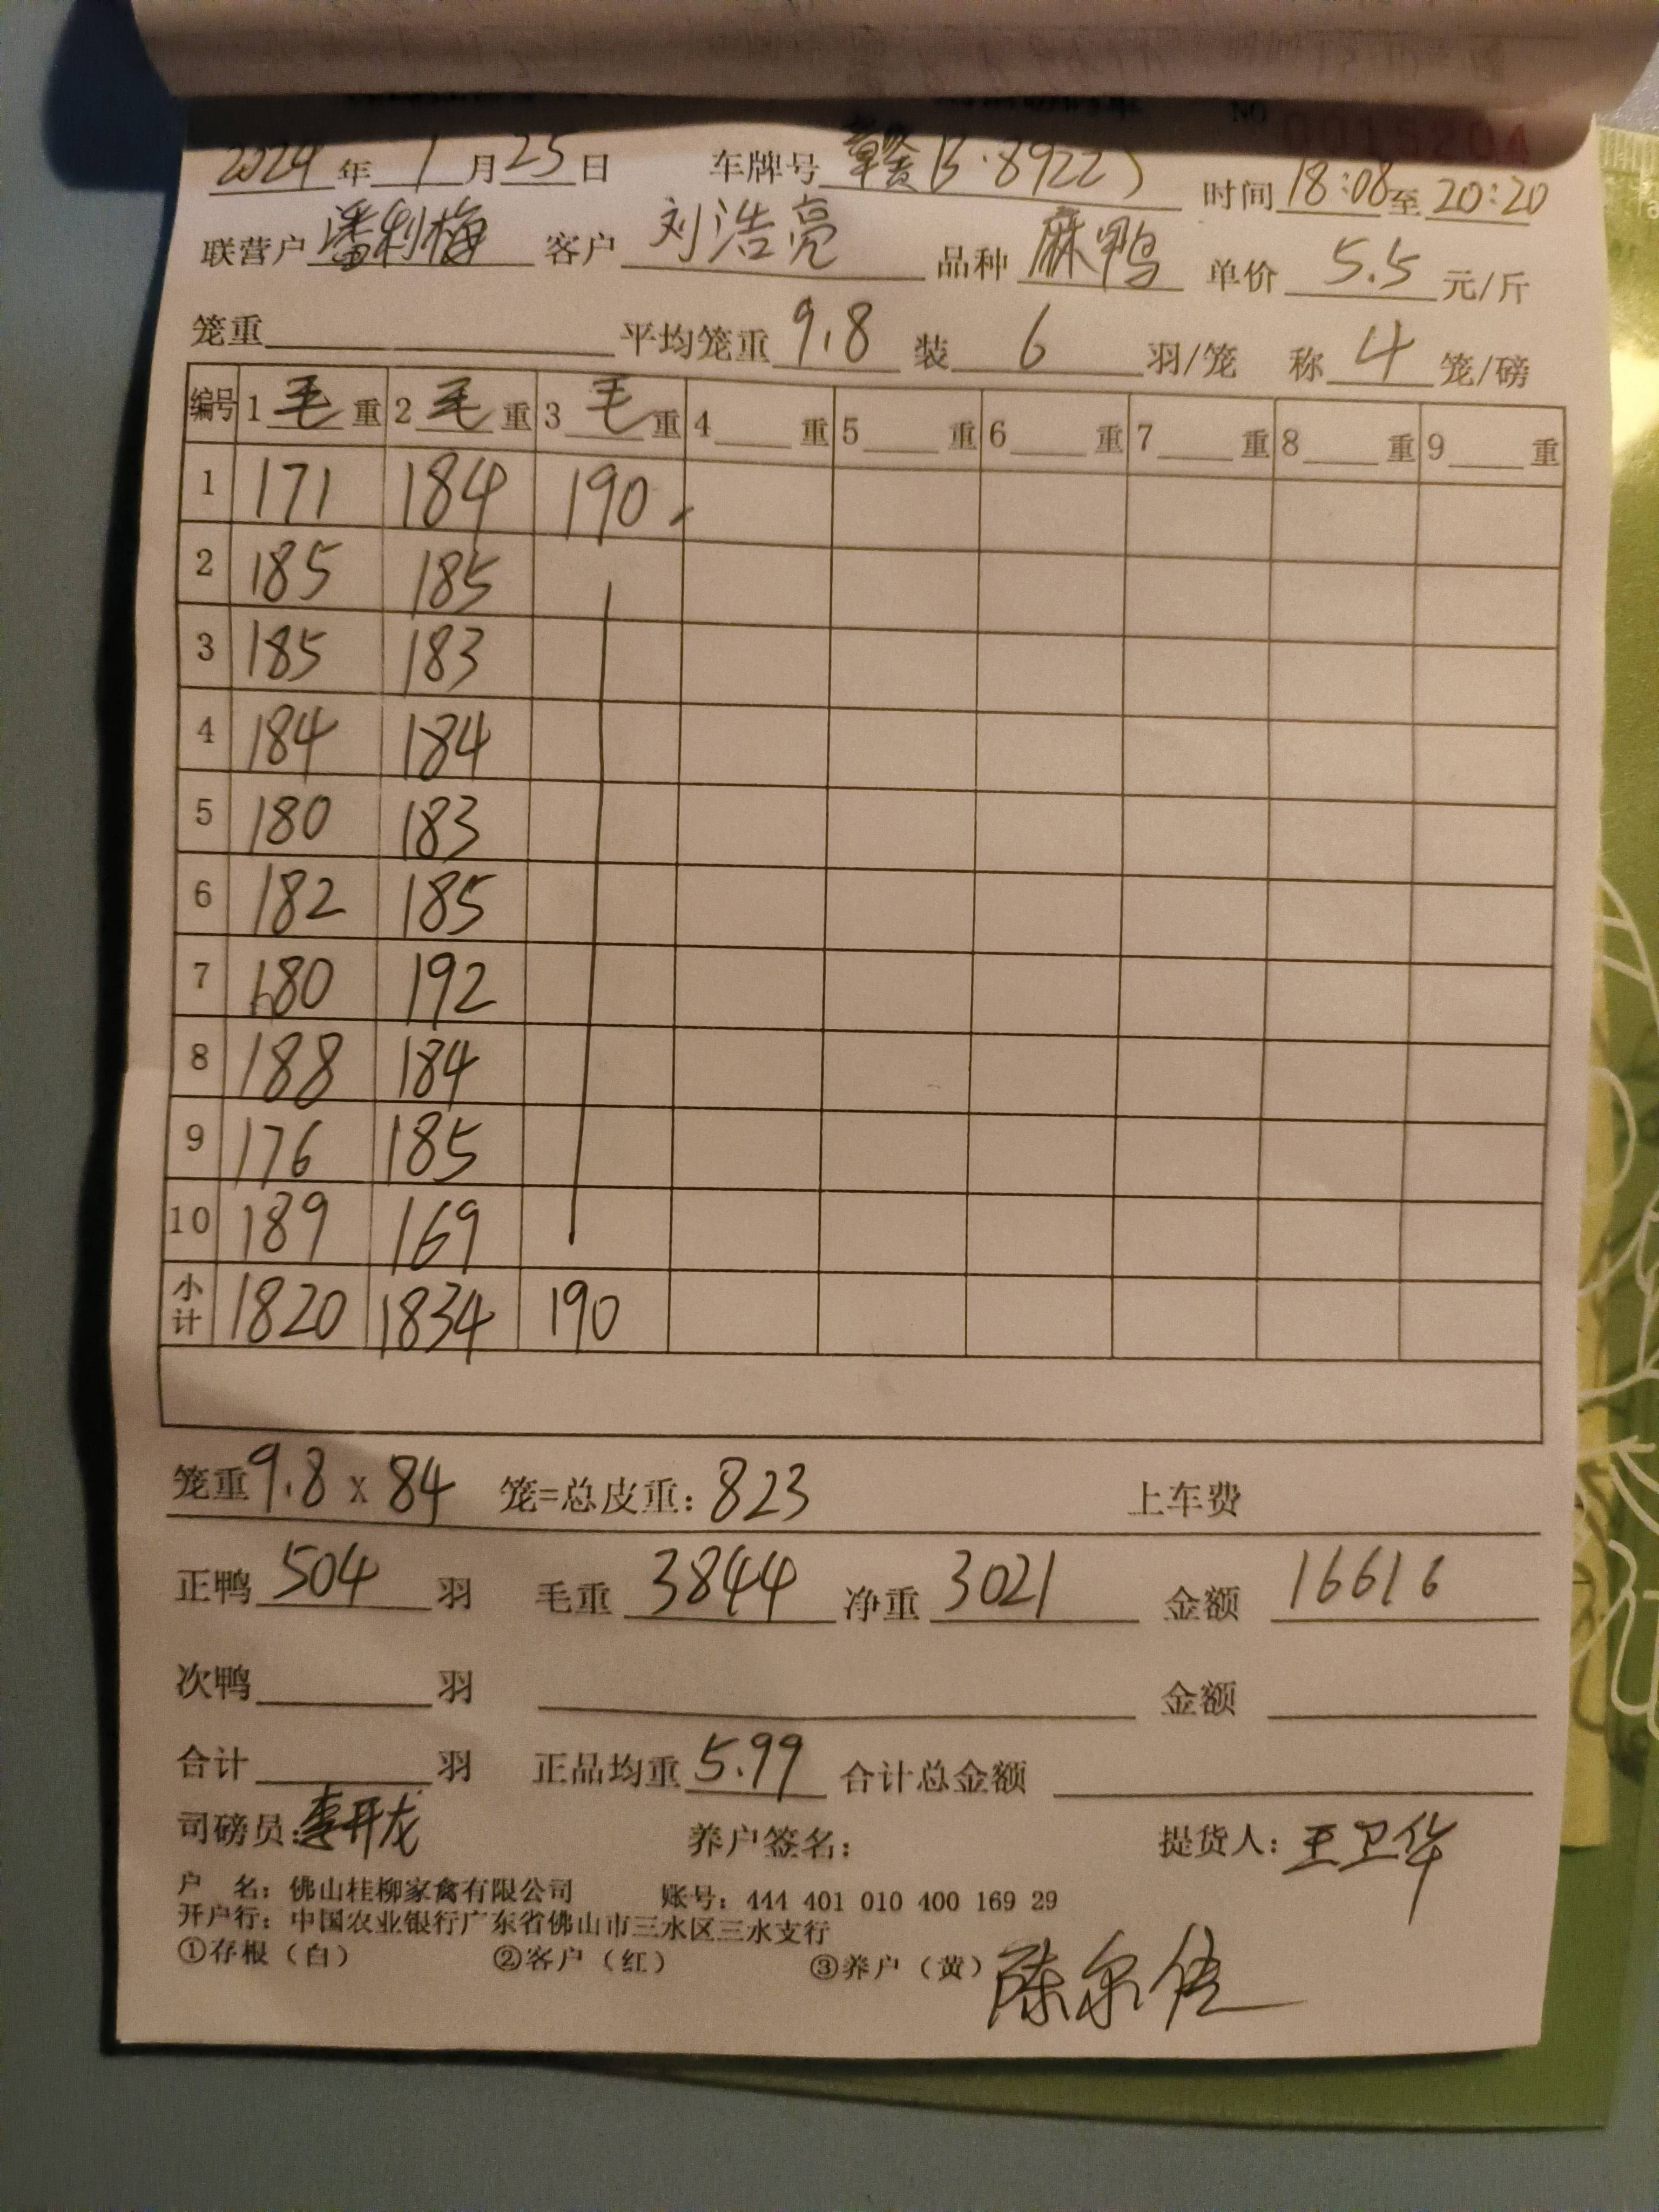 NO 0015204
2024年1月25日 车牌号 赣B·89225 时间18:08至20:20
联营户 潘利梅 客户 刘浩亮 品种 麻鸭 单价 5.5 元/斤
笼重 平均笼重 9.8 装 6 羽/笼 称 4 笼/磅
编号 1 毛 重 2 毛 重 3 毛 重 4 重 5 重 6 重 7 重 8 重 9 重
1 171 184 190
2 185 185
3 185 183
4 184 184
5 180 183
6 182 185
7 180 192
8 188 184
9 176 185
10 189 169
小计 1820 1834 190
笼重 9.8 x 84 笼=总皮重: 823 上车费
正鸭 504 羽 毛重 3844 净重 3021 金额 16616
次鸭 羽 金额
合计 羽 正品均重 5.99 合计总金额
司磅员: 李开龙 养户签名: 提货人: 王卫华
户 名: 佛山桂柳家禽有限公司 账号: 444 401 010 400 169 29
开户行: 中国农业银行广东省佛山市三水区三水支行
①存根（白） ②客户（红） ③养户（黄）